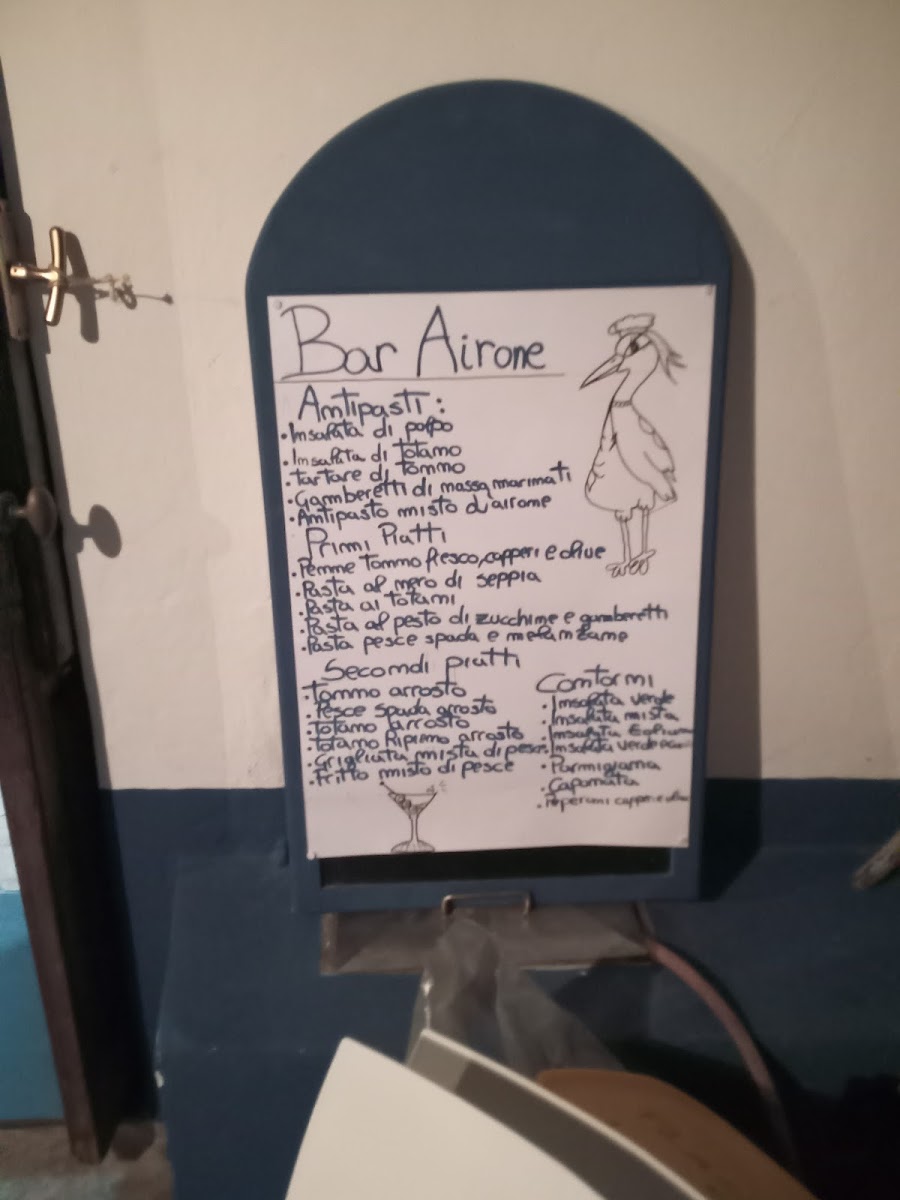 Bar Airone
Antipasti:
•Insalata di polpo
•Insalata di totano
•Tartare di tonno
•Gamberetti di massa marinati
•Antipasto misto d'airone
Primi Piatti
•Penne Tonno fresco, capperi e olive
•Pasta al nero di seppia
•Pasta ai totani
•Pasta al pesto di zucchine e gamberetti
•Pasta pesce spada e melanzane
Secondi piatti
•Tonno arrosto
•Pesce spada arrosto
•Totano arrosto
•Totano Ripieno arrosto
•Grigliata mista di pesce
•Fritto misto di pesce
Contorni
•Insalata verde
•Insalata mista
•Insalata Eoliana
•Insalata verde
•Parmigiana
•Caponata
•Peperoni capperi e olive